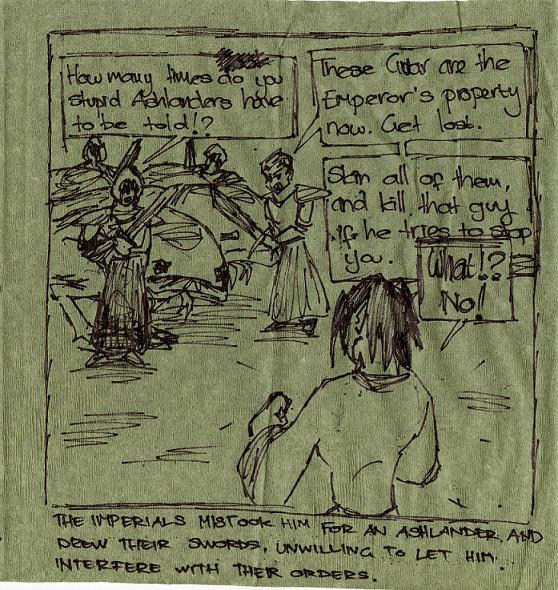 How many times do you
stupid Ashlanders have
to be told!?
These Guar are the
Emperor's property
now. Get lost.
Skin all of them,
and kill that guy
if he tries to stop
you.
What!?
No!
THE IMPERIALS MISTOOK HIM FOR AN ASHLANDER AND
DREW THEIR SWORDS, UNWILLING TO LET HIM
INTERFERE WITH THER ORDERS.